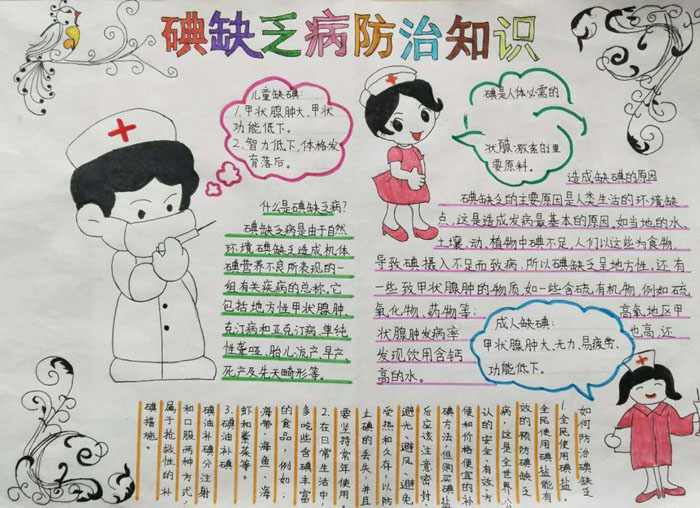 碘缺乏病防治知识
儿童缺碘:
1.甲状腺肿大、甲状
功能低下。
2.智力低下,体格发
育落后。
什么是碘缺乏病?
碘缺乏病是由于自然
环境碘缺乏造成机体
碘营养不良所表现的一
组有关疾病的总称。它
包括地方性甲状腺肿、
克汀病和亚克汀病、单纯
性聋哑、胎儿流产、早产、
死产及先天畸形等。
碘是人体必需的
状腺激素的重
要原料。
造成缺碘的原因
碘缺乏的主要原因是人类生活的环境缺
点,这是造成发病最基本的原因。如当地的水、
土壤、动、植物中碘不足,人们以这些为食物,
导致碘摄入不足而致病,所以碘缺乏呈地方性,还有
一些致甲状腺肿的物质,如一些含硫有机物,例如硫
氰化物、药物等; 高氟地区甲
状腺肿发病率 也高,还
发现饮用含钙
高的水。
成人缺碘:
甲状腺肿大、无力、易疲劳、
功能低下。
如何防治碘缺乏
1.全民使用碘盐。
全民使用碘盐能有
效的预防碘缺乏
病,这是全世界公
认的安全、有效、方
便和价格便宜的补
碘方法,但购买碘盐
后应该注意密封、
避光、避风、避免
受热和久存,以防
止碘的丢失,并且
要坚持常年使用。
2.在日常生活中
多吃些含碘丰富
的食品,例如:
海带、海鱼、海
虾和紫菜等。
3.碘油补碘
碘油补碘分注射
和口服两种方式,
属于抢救性的补
碘措施。